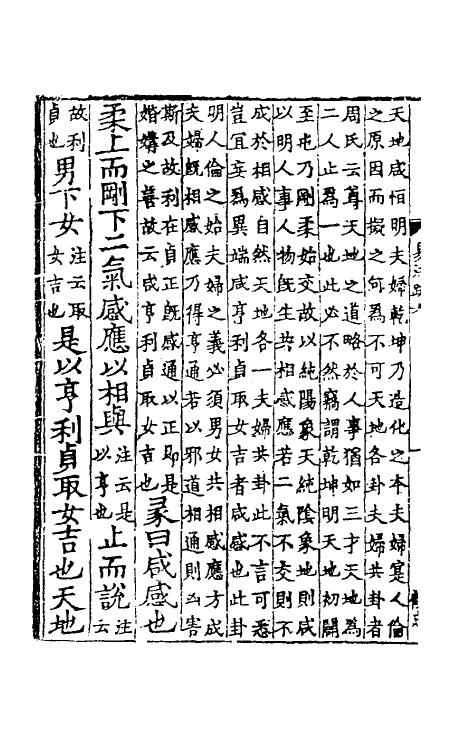 天地咸恒明夫婦乾坤乃造化之本夫婦寔人倫
之原因而擬之何為不可天地各卦夫婦共卦者
周氏云尊天地之道略於人事猶如三才天地為
二人止為一也此必不然竊謂乾坤明天地初闢
至屯乃剛柔始交故以純陽象天純陰象地則咸
以明人事人物既生共相感應若二氣不交則不
成於相感自然天地各一夫婦共卦此不言可悉
豈冝妄為異端咸亨利貞取女吉者咸感也此卦
明人倫之始夫婦之義必須男女共相感應方成
夫婦既相感應乃得亨通若以邪道相通則凶害
斯及故利在貞正既感通以正即是
婚媾之善故云咸亨利貞取女吉也
彖曰咸感也
柔上而剛下二氣感應以相與
注云是
以亨也
止而說
注
云
故利
貞也
男下女
注云取
女吉也
是以亨利貞取女吉也天地